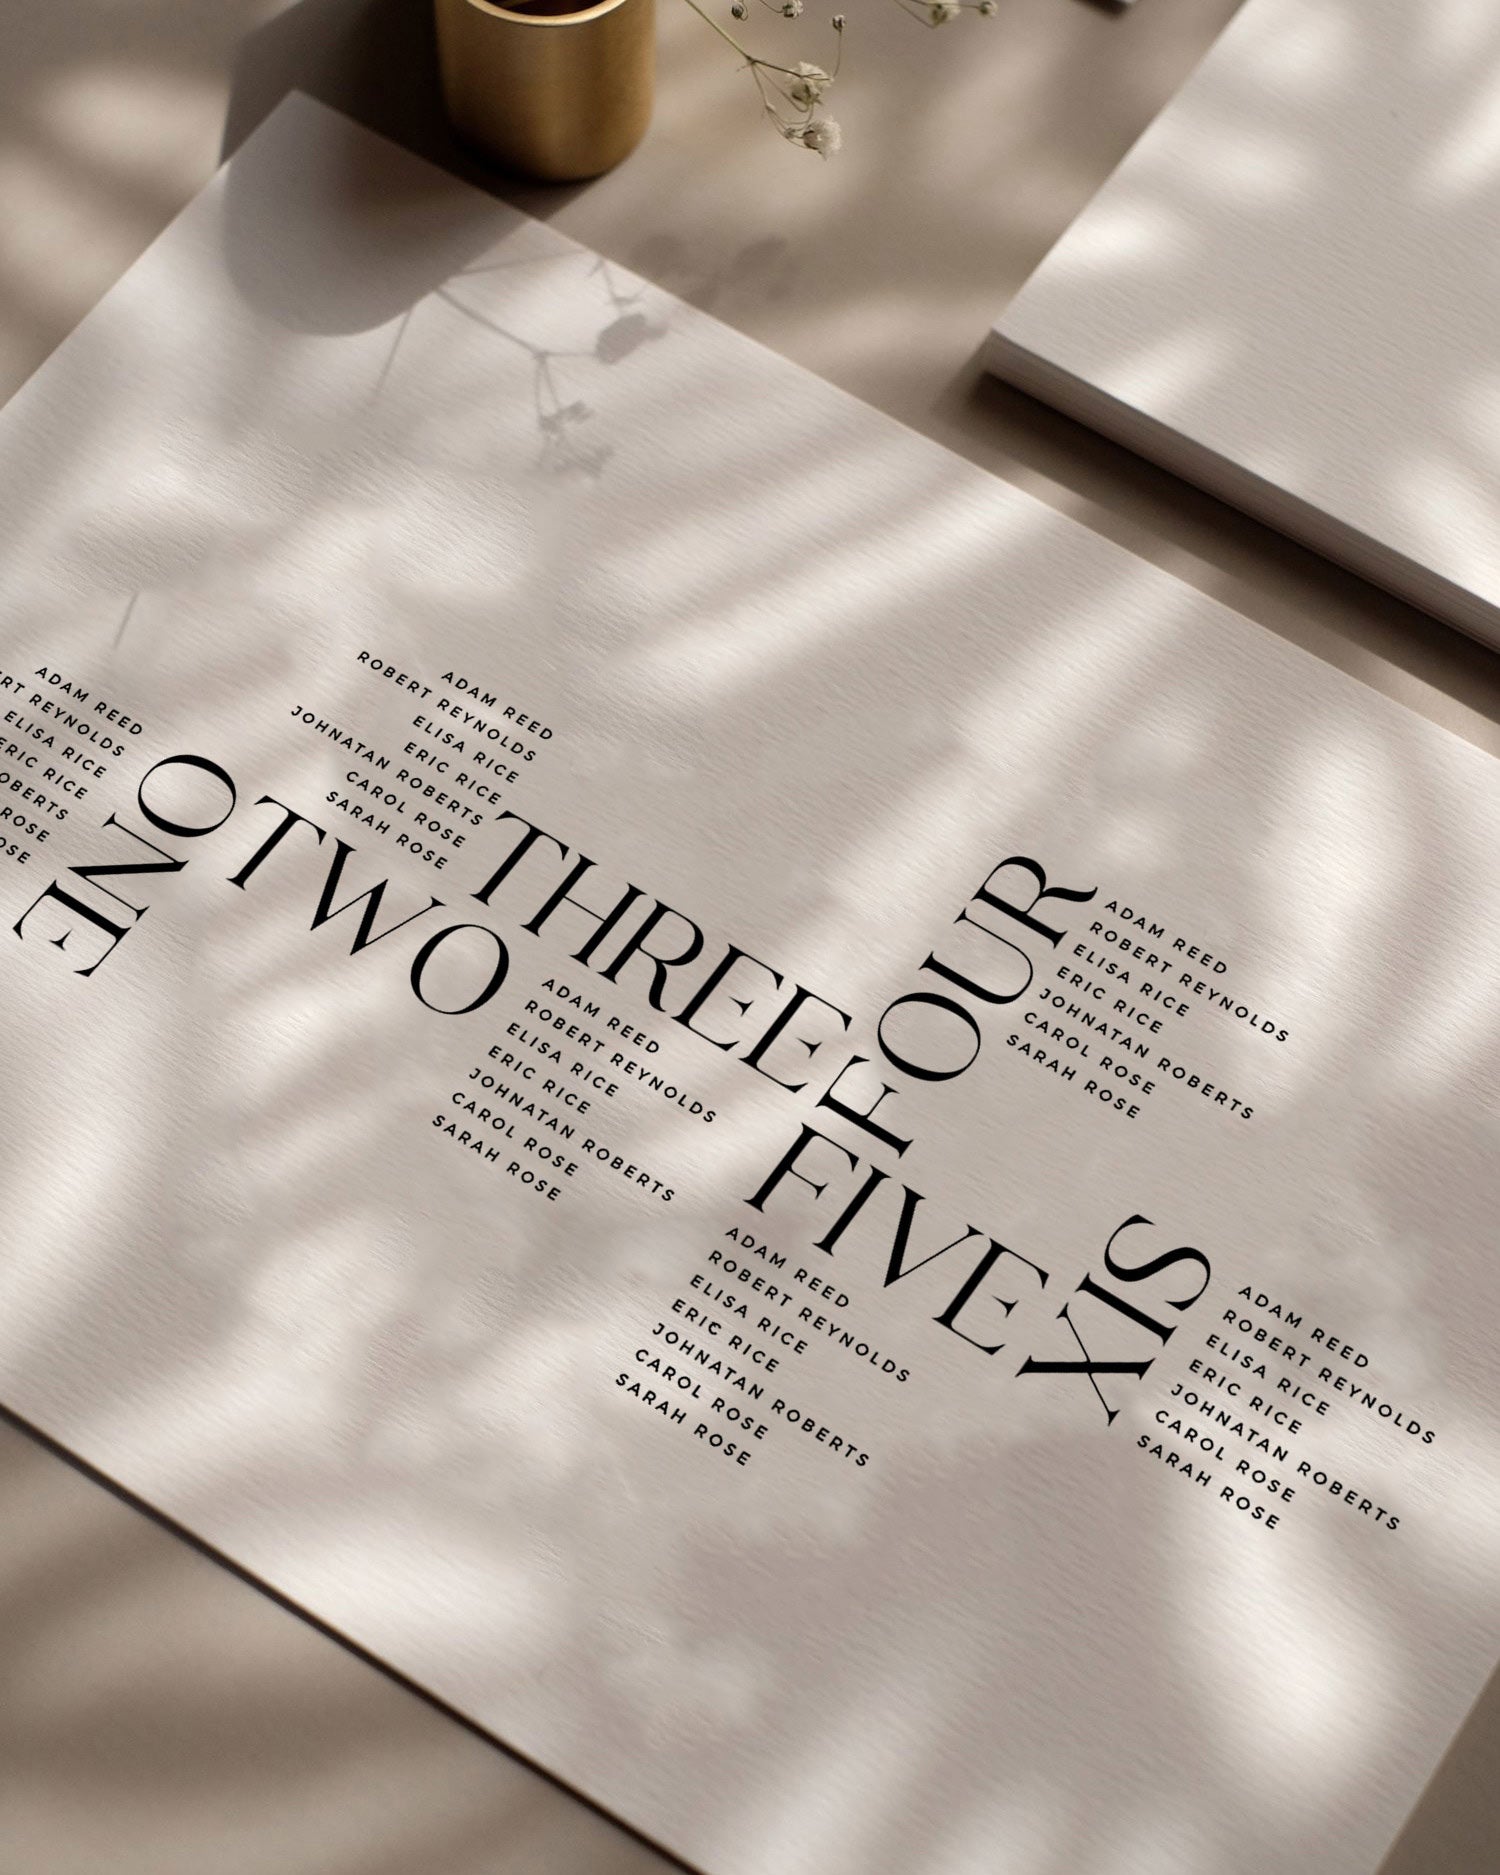 ADAM REED
REYNOLDS
ELISA RICE
ERIC RICE
ROSE
ONE
ADAM REED
ROBERT REYNOLDS
ELISA RICE
ERIC RICE
JOHNATAN ROBERTS
CAROL ROSE
SARAH ROSE
TWO
THREE
ADAM REED
ROBERT REYNOLDS
ELISA RICE
ERIC RICE
JOHNATAN ROBERTS
CAROL ROSE
SARAH ROSE
FOUR
ADAM REED
ROBERT REYNOLDS
ELISA RICE
ERIC RICE
JOHNATAN ROBERTS
CAROL ROSE
SARAH ROSE
FIVE
ADAM REED
ROBERT REYNOLDS
ELISA RICE
ERIC RICE
JOHNATAN ROBERTS
CAROL ROSE
SARAH ROSE
SIX
ADAM REED
ROBERT REYNOLDS
ELISA RICE
ERIC RICE
JOHNATAN ROBERTS
CAROL ROSE
SARAH ROSE